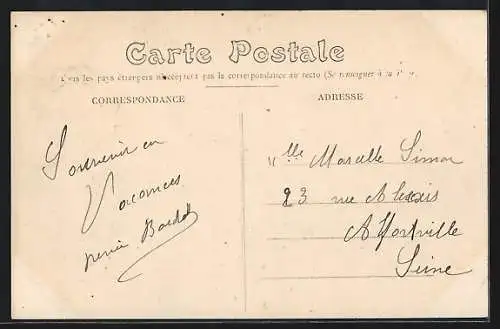 Carte Postale
les pays étrangers n'acceptent pas la correspondance au recto (Se renseigner à la
CORRESPONDANCE
ADRESSE
Souvenir en
Vacances
Mlle Marcelle Simon
23 rue Alexis
Alfortville
Seine